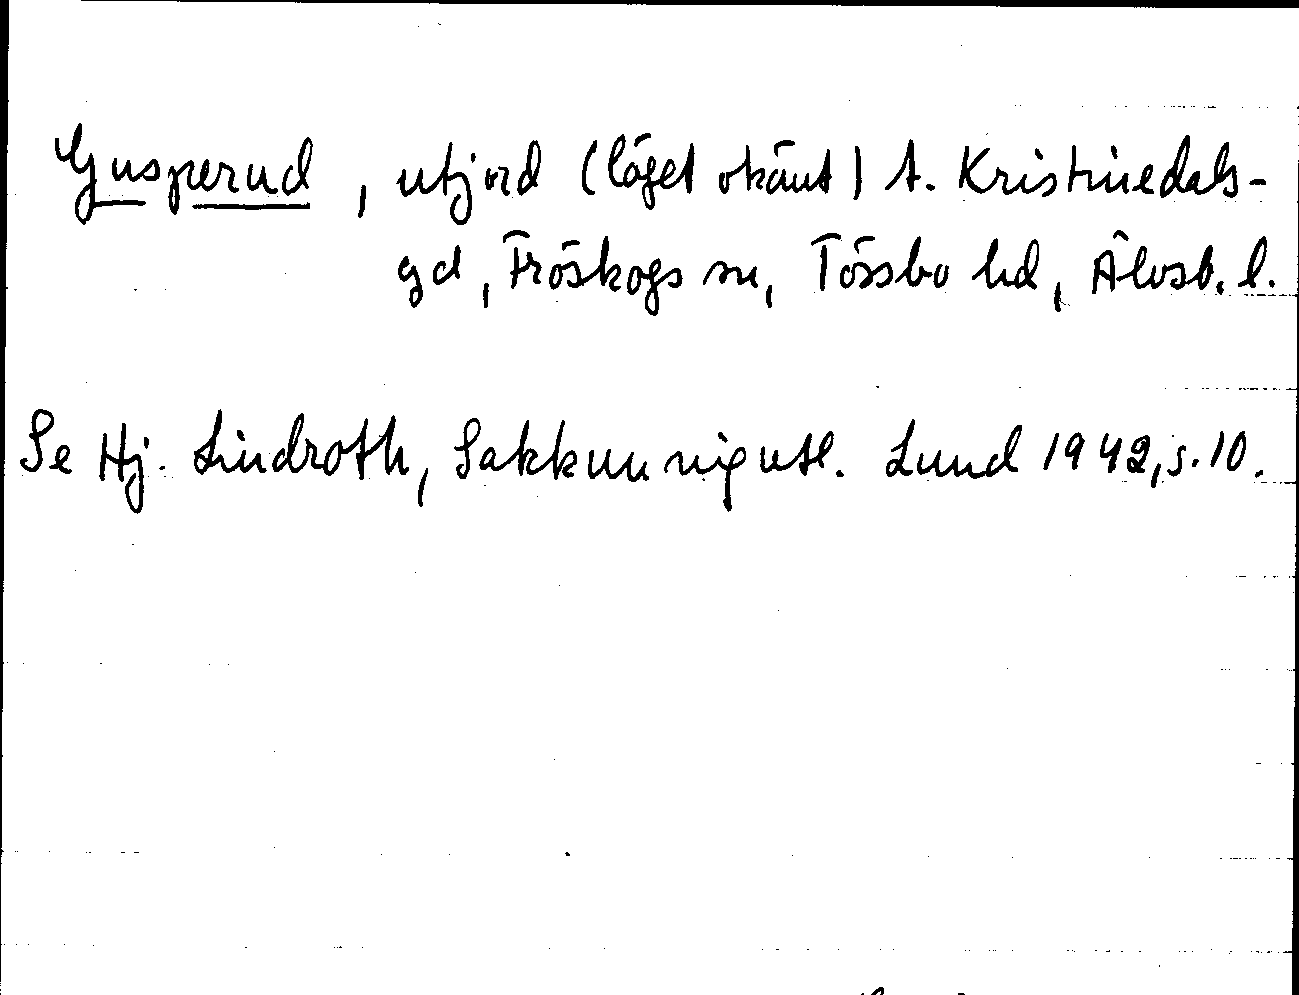 Gusperud, utjord (läget okänt) t. Kristinedals-
gd, Fröskogs sn, Tössbo hd, Älvsb. l.
Se Hj. Lindroth, Sakkunnigutl. Lund 1942, s. 10.